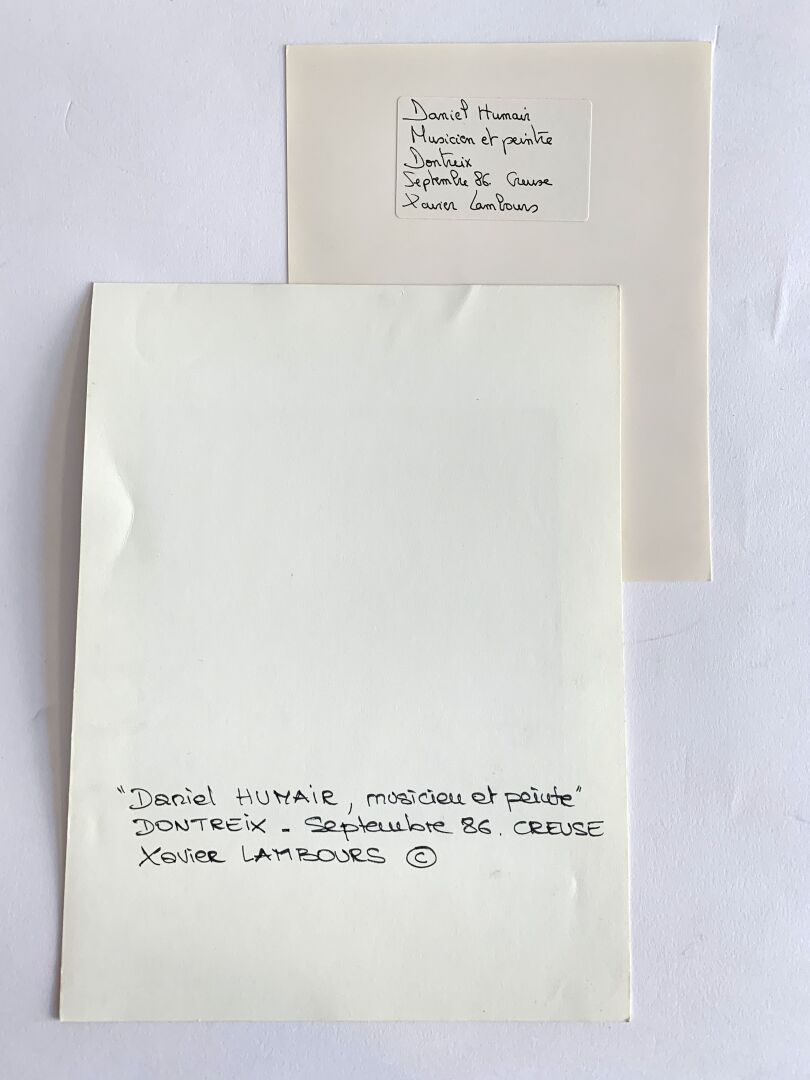 Daniel Humair
Musicien et peintre
Dontreix
Septembre 86. Creuse
Xavier Lambours
"Daniel HUMAIR, musicien et peintre"
DONTREIX - Septembre 86. CREUSE
Xavier LAMBOURS ©